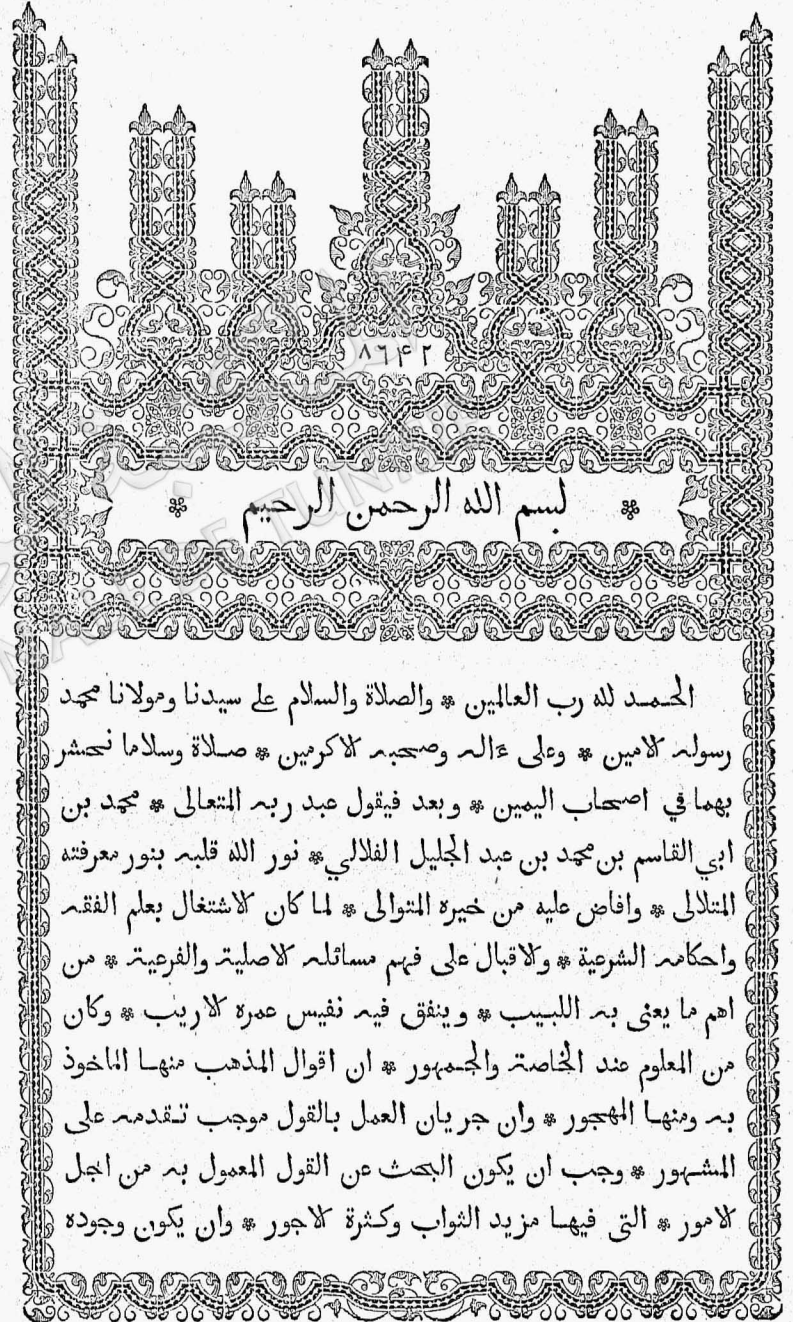 ٨٦۴٢
* بسم الله الرحمن الرحيم *
الحمد لله رب العالمين * والصلاة والسلام على سيدنا ومولانا محمد
رسوله الامين * وعلى ءاله وصحبه الاكرمين * صلاة وسلاما نحشر
بهما في اصحاب اليمين * وبعد فيقول عبد ربه المتعالى * محمد بن
ابي القاسم بن محمد بن عبد الجليل الفلالي * نور الله قلبه بنور معرفته
المتلالى * وافاض عليه من خيره المتوالى * لما كان الاشتغال بعلم الفقه
واحكامه الشرعية * والاقبال على فهم مسائله الاصلية والفرعية * من
اهم ما يعنى به اللبيب * وينفق فيه نفيس عمره الاريب * وكان
من المعلوم عند الخاصة والجمهور * ان اقوال المذهب منها الماخوذ
به ومنها المهجور * وان جريان العمل بالقول موجب تقدمه على
المشهور * وجب ان يكون البحث عن القول المعمول به من اجل
الامور * التى فيها مزيد الثواب وكثرة الاجور * وان يكون وجوده